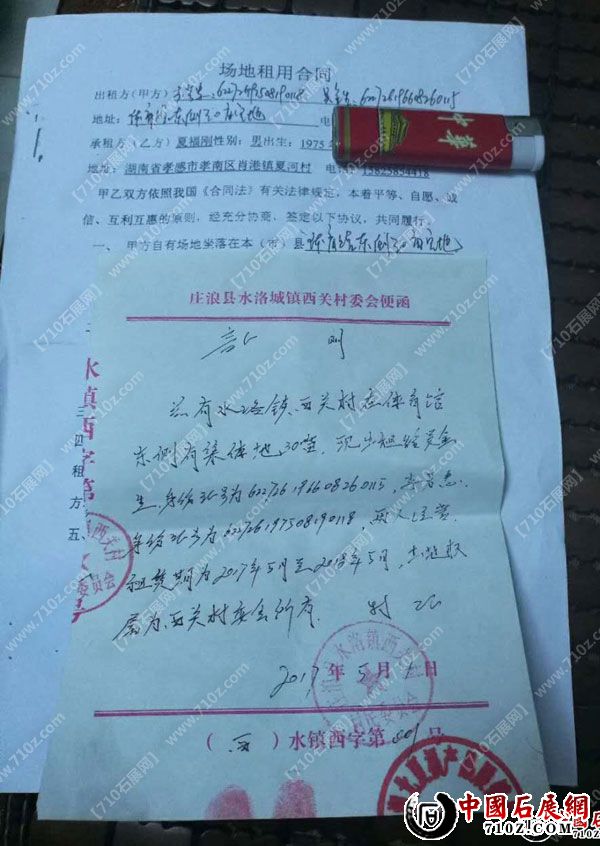 场地租用合同
出租方(甲方) 622726197508190118 622726196608260115
地址:
承租方(乙方)夏福刚性别:男出生:1975
地址:湖南省孝感市孝南区肖港镇夏河村 电 13825834418
甲乙双方依照我国《合同法》有关法律规定,本着平等、自愿、诚
信、互利互惠的原则,经充分协商,签定以下协议,共同履行。
一、甲方自有场地坐落在本(市)县
中华
庄浪县水洛城镇西关村委会便函
证 明
兹有水洛镇西关村在体育馆
东侧有集体地30亩,现出租给吴金
生,身份证号为622726196608260115,李
身份证号为622726197508190118,两人经营.
租赁期为2017年5月至2018年5月,土地权
属为西关村委会所有. 特证
2017年5月 日
(西)水镇西字第001号
水镇西字第
三
四
租
方
五、
【710石展网】
www.710z.com
中國石展網
710Z.COM